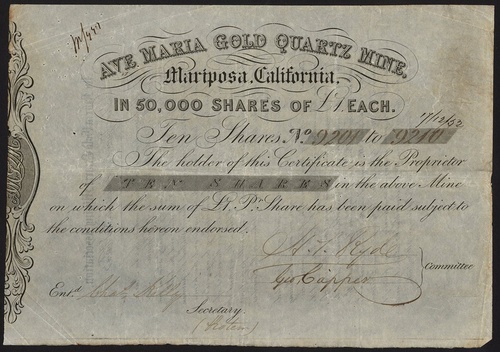 AVE MARIA GOLD QUARTZ MINE,
Mariposa, California,
IN 50,000 SHARES OF £1 EACH.
17/12/52
Ten Shares No. 9201 to 9210
The holder of this Certificate is the Proprietor
of TEN SHARES in the above Mine
on which the sum of £1. Pr. Share has been paid subject to
the conditions hereon endorsed.
Geo Capper
Committee
Entd.
Secretary